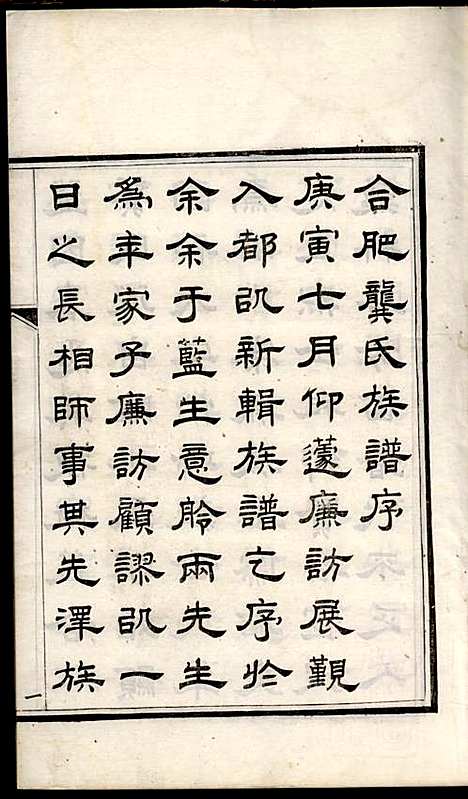 合肥龔氏族譜序
庚寅七月仰蘧廉訪展覲
入都㕥新輯族譜乞序於
余余于藍生意舲兩先生
為年家子廉訪顧謬㕥一
日之長相師事其先澤族
一